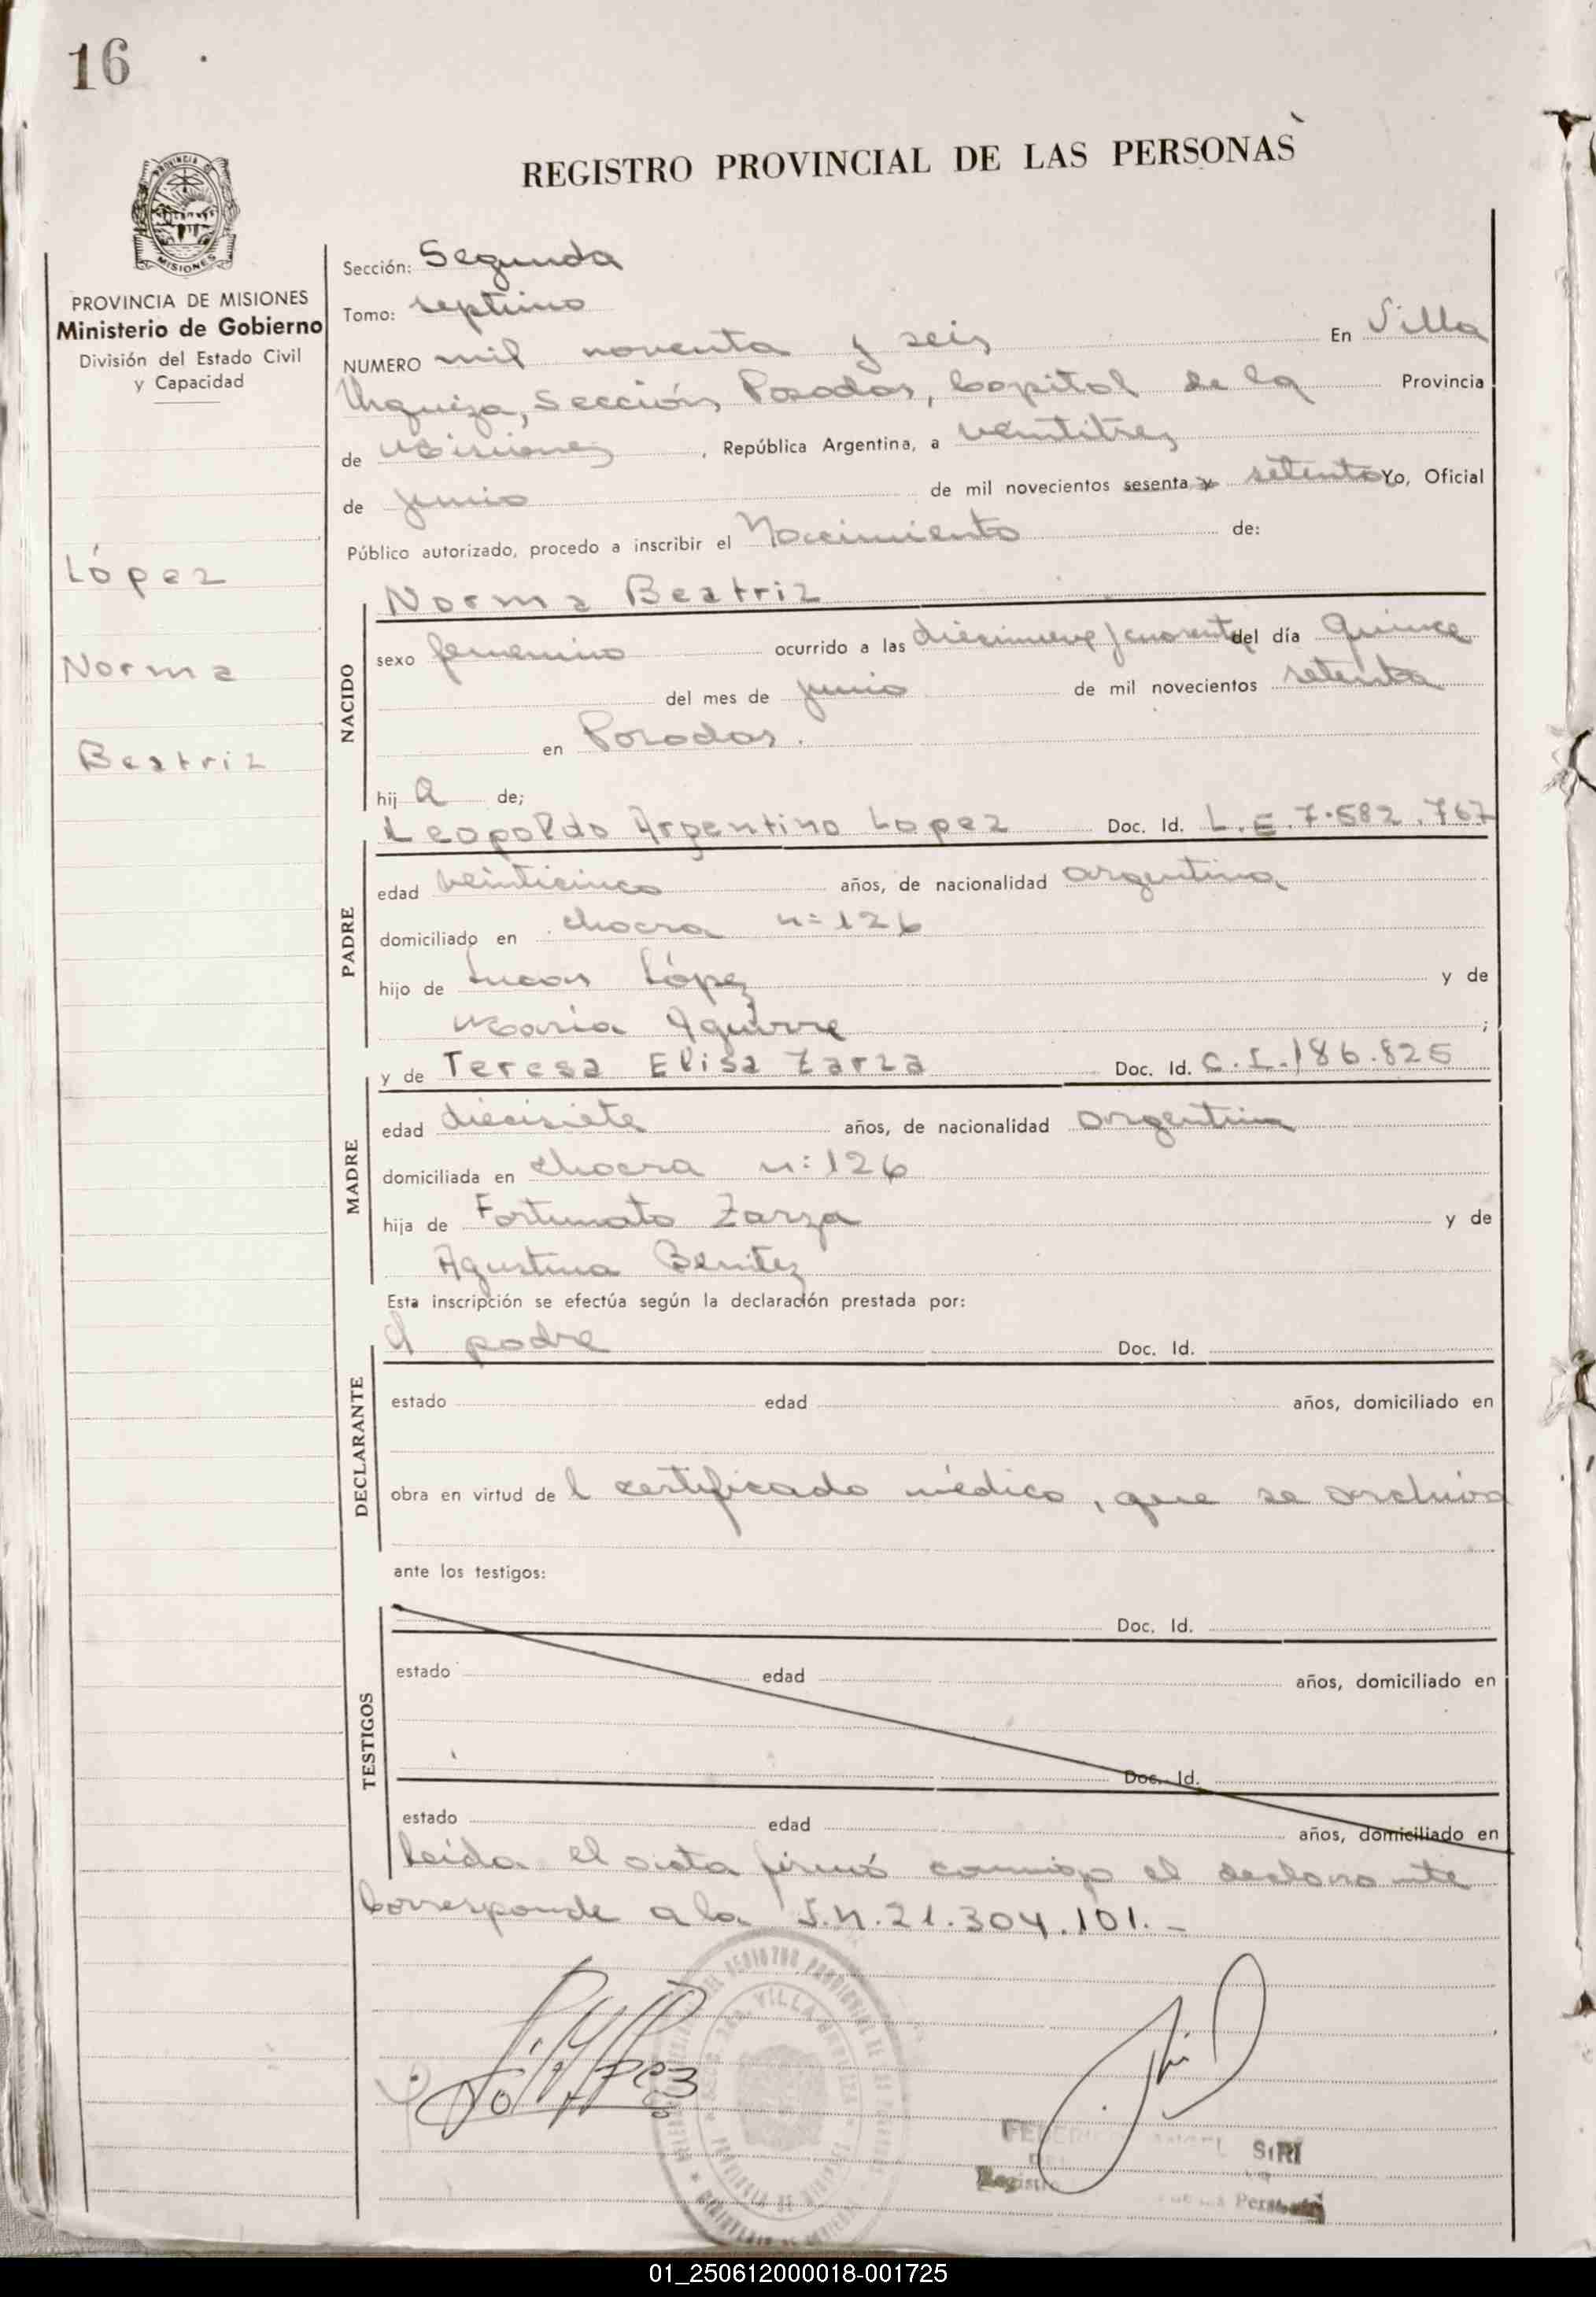 16
REGISTRO PROVINCIAL DE LAS PERSONAS
MISIONES
PROVINCIA DE MISIONES
Ministerio de Gobierno
División del Estado Civil
y Capacidad
López
Norma
Beatriz
Sección: Segunda
Tomo: septimo
NUMERO mil noventa y seis En Villa
Urquiza, Sección Posadas, Capital de la Provincia
de Misiones, República Argentina, a veintitres
de junio de mil novecientos sesenta y setenta Yo, Oficial
Público autorizado, procedo a inscribir el Nacimiento de:
NACIDO
Norma Beatriz
sexo femenino ocurrido a las diecinueve y cuarenta del día quince
del mes de junio de mil novecientos setenta
en Posadas.
hij a de;
PADRE
Leopoldo Argentino Lopez Doc. Id. L.E. 7.582.767
edad veinticinco años, de nacionalidad argentina
domiciliado en chacra n: 126
hijo de Lucas López y de
María Aguirre ;
MADRE
y de Teresa Elisa Zarza Doc. Id. C.I. 186.825
edad diecisiete años, de nacionalidad argentina
domiciliada en chacra n: 126
hija de Fortunato Zarza y de
Agustina Benitez
Esta inscripción se efectúa según la declaración prestada por:
DECLARANTE
el padre Doc. Id.
estado edad años, domiciliado en
obra en virtud de l certificado médico, que se archiva
ante los testigos:
TESTIGOS
Doc. Id.
estado edad años, domiciliado en
Doc. Id.
estado edad años, domiciliado en
Leida el acta firmó conmigo el declarante
Corresponde a la 21.304.101.-
SIRI
Registro
01_250612000018-001725